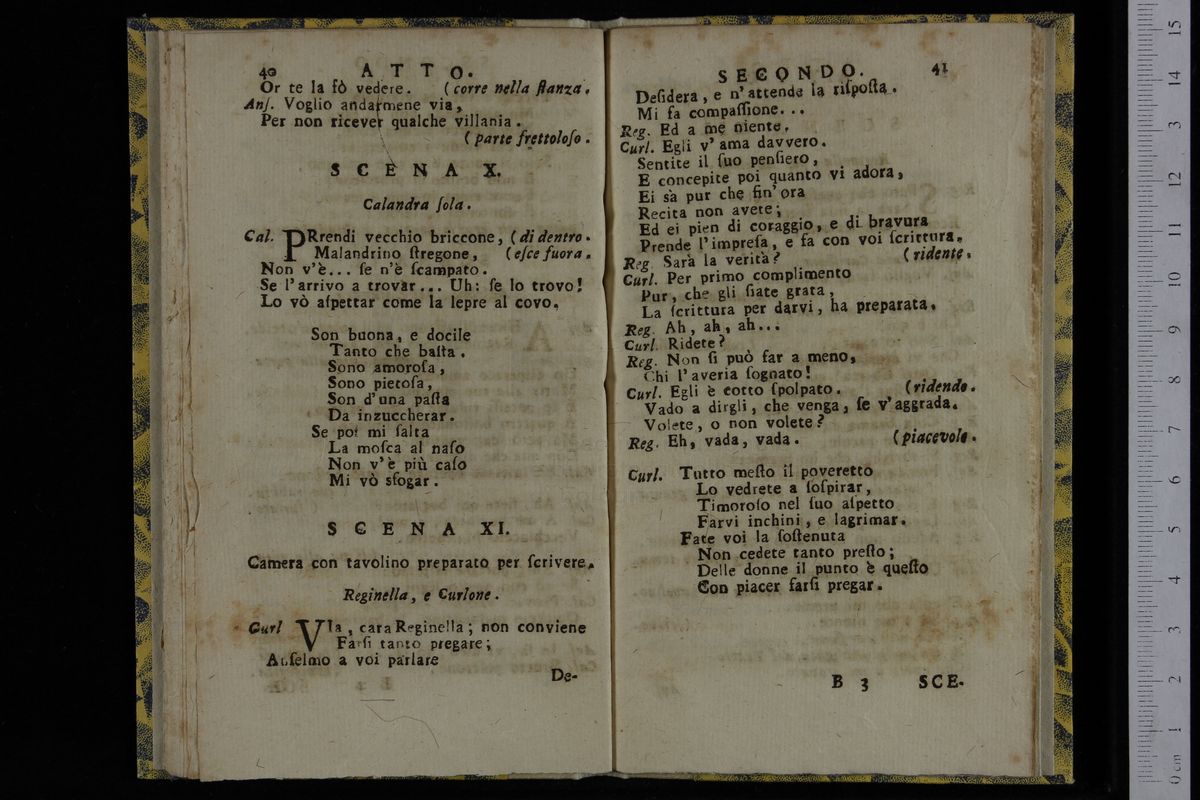 40 ATTO.
Or te la fò vedere. (corre nella ſtanza.
Anſ. Voglio andarmene via,
Per non ricever qualche villania.
(parte frettoloſo.
SCENA X.
Calandra ſola.
Cal. PRrendi vecchio briccone, (di dentro.
Malandrino ſtregone, (eſce fuora.
Non v'è... ſe n'è ſcampato.
Se l'arrivo a trovar... Uh: ſe lo trovo!
Lo vò aſpettar come la lepre al covo.
Son buona, e docile
Tanto che baſta.
Sono amoroſa,
Sono pietoſa,
Son d'una paſta
Da inzuccherar.
Se poi mi ſalta
La moſca al naſo
Non v'è più caſo
Mi vò sfogar.
SCENA XI.
Camera con tavolino preparato per ſcrivere.
Reginella, e Curlone.
Curl VIa, cara Reginella; non conviene
Farſi tanto pregare;
Anſelmo a voi parlare
De-
SECONDO. 41
Deſidera, e n'attende la riſpoſta.
Mi fa compaſſione...
Reg. Ed a me niente.
Curl. Egli v'ama davvero.
Sentite il ſuo penſiero,
E concepite poi quanto vi adora,
Ei sà pur che fin'ora
Recita non avete;
Ed ei pien di coraggio, e di bravura
Prende l'impreſa, e fa con voi ſcrittura.
Reg. Sarà la verità? (ridente.
Curl. Per primo complimento
Pur, che gli ſiate grata,
La ſcrittura per darvi, ha preparata.
Reg. Ah, ah, ah...
Curl. Ridete?
Reg. Non ſi può far a meno,
Chi l'averia ſognato!
Curl. Egli è cotto ſpolpato. (ridendo.
Vado a dirgli, che venga, ſe v'aggrada.
Volete, o non volete?
Reg. Eh, vada, vada. (piacevole.
Curl. Tutto meſto il poveretto
Lo vedrete a ſoſpirar,
Timoroſo nel ſuo aſpetto
Farvi inchini, e lagrimar.
Fate voi la ſoſtenuta
Non cedete tanto preſto;
Delle donne il punto è queſto
Con piacer farſi pregar.
B 3 SCE-
0 cm 1 2 3 4 5 6 7 8 9 10 11 12 13 14 15